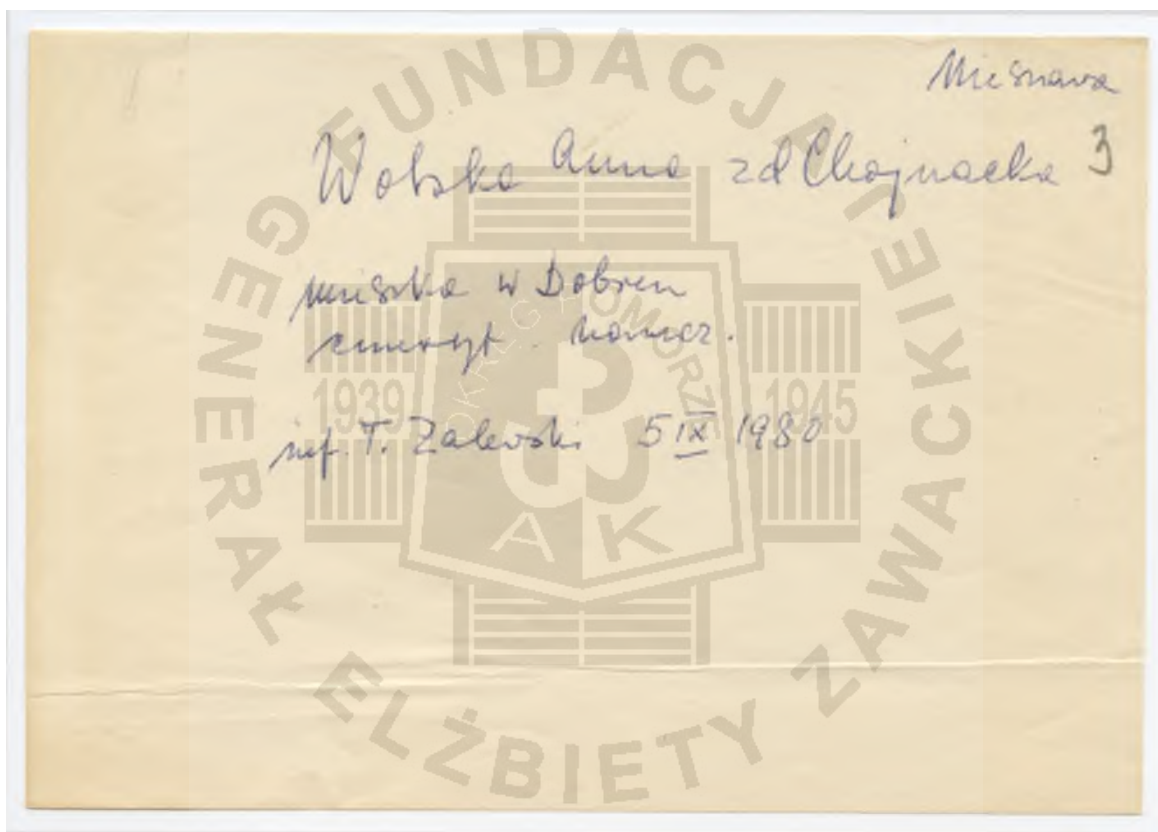 Mieszawa
Wolska Anna zd Chojnacka 3
mieszka w Dobrem
emeryt. naucz.
inf. T. Zalewski 5 IX 1980
FUNDACJA GENERAŁ ELŻBIETY ZAWACKIEJ
OKRĘG POMORZE
1939 1945
AK